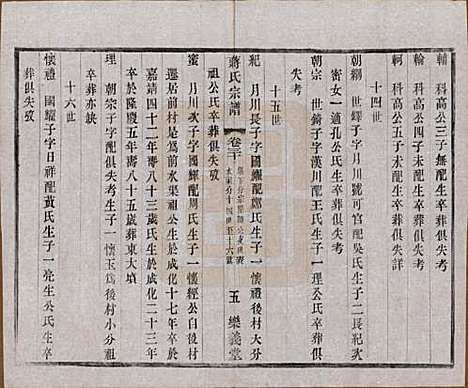 輔　科高公三子無配生卒葬俱失考
輪　科高公四子未配生卒葬俱失考
軻　科高公五子未配生卒葬俱失詳
十四世
朝綱　世鐸子字月川號可官配吳氏生子二長紀次
蜜女一適孔公氏生卒葬俱失考
朝宗　世鐃子字漢川配王氏生子一理公氏卒葬俱
失考
十五世
蔣氏宗譜　卷三十　五　樂義堂
紀　月川長子字國耀配鄭氏生子一懷禮後村大分
祖公氏卒葬俱失考
蜜　月川次子字國輝配周氏生子一懷經公自後村
遷居前村是為前水渠祖公生於成化十七年卒
嘉靖四十二年壽八十三歲氏生於成化二十三年
卒於隆慶五年壽八十五歲葬東大墳
理　朝宗子字配俱失考生子一懷玉為後村小分祖
卒葬亦缺
十六世
懷禮　國耀子字日祥配黃氏生子一堯生公氏生卒
葬俱失攷